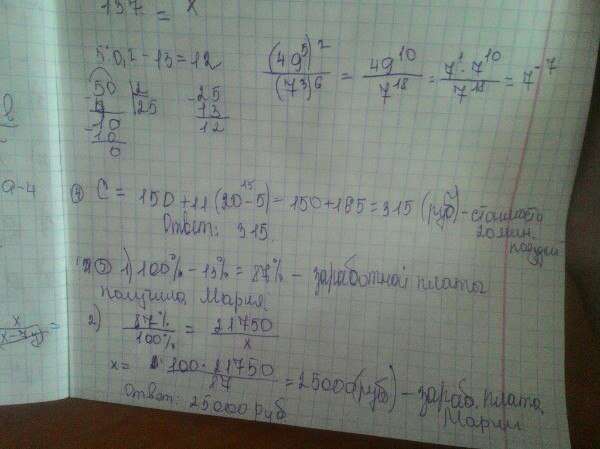 137 = x
5:0,2-13=12
(49⁵)² / (7³)⁶ = 49¹⁰ / 7¹⁸ = 7¹·7¹⁰ / 7¹⁸ = 7⁻⁷
50 2
25
10
10
0
- 25
13
12
а-4
④ C = 150+11(20-5)=150+185=315 (руб) - стоимость
20 мин.
Ответ: 315.
⑤ 1) 100% - 13% = 87% - заработной платы
получила Мария.
2) 87% / 100% = 21750 / x
x = 100·21750 / 87 = 25000(руб) - зараб. плата
Марии
Ответ: 25000 руб.